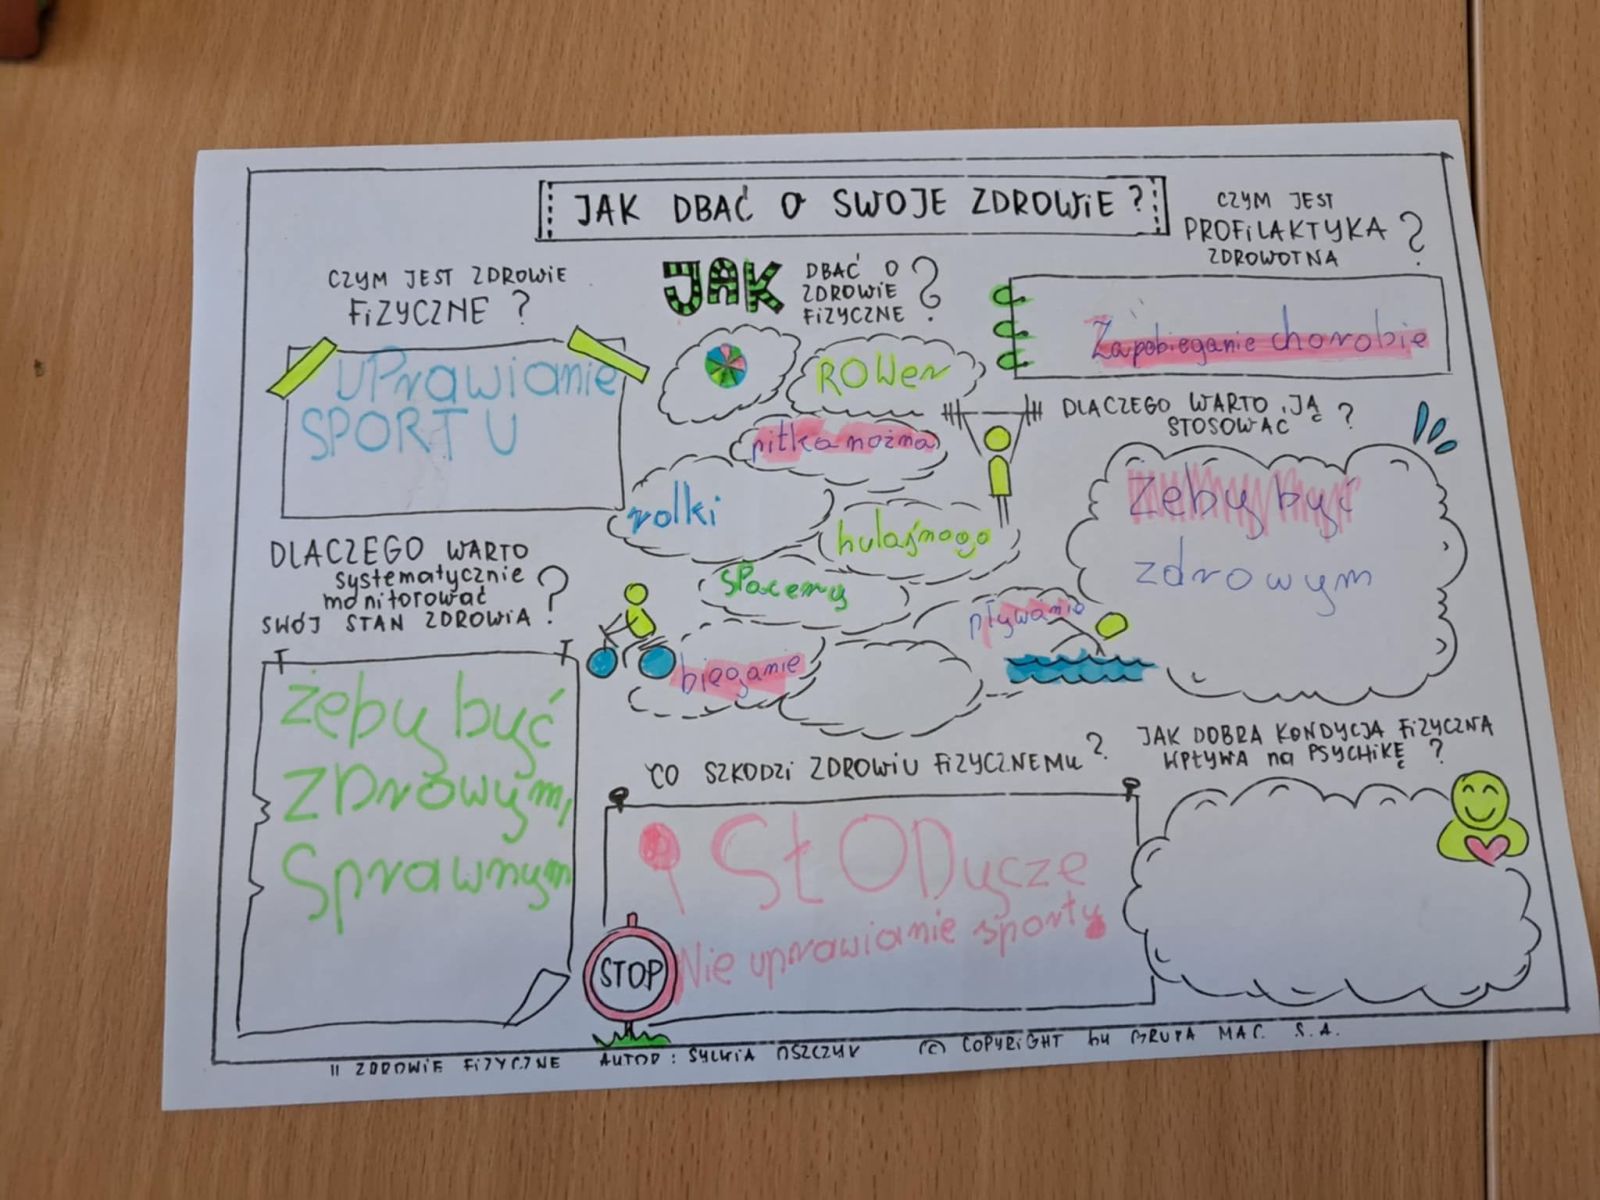 JAK DBAĆ O SWOJE ZDROWIE?
CZYM JEST ZDROWIE
FIZYCZNE?
UPrawianie
SPORTU
DLACZEGO WARTO
systematycznie
monitorować
SWÓJ STAN ZDROWIA?
żeby być
ZDrowym,
Sprawnym
JAK DBAĆ O
ZDROWIE
FIZYCZNE?
ROWer
piłka nożna
rolki
hulajnoga
SPacery
pływanie
bieganie
CZYM JEST
PROFILAKTYKA?
ZDROWOTNA
Zapobieganie chorobie
DLACZEGO WARTO JĄ
STOSOWAĆ?
Żeby być
zdrowym
CO SZKODZI ZDROWIU FIZYCZNEMU?
SŁODycze
Nie uprawianie sportu
STOP
JAK DOBRA KONDYCJA FIZYCZNA
WPŁYWA na PSYCHIKĘ?
II ZDROWIE FIZYCZNE AUTOR: SYLWIA OSZCZYK © COPYRIGHT by GRUPA MAC S.A.